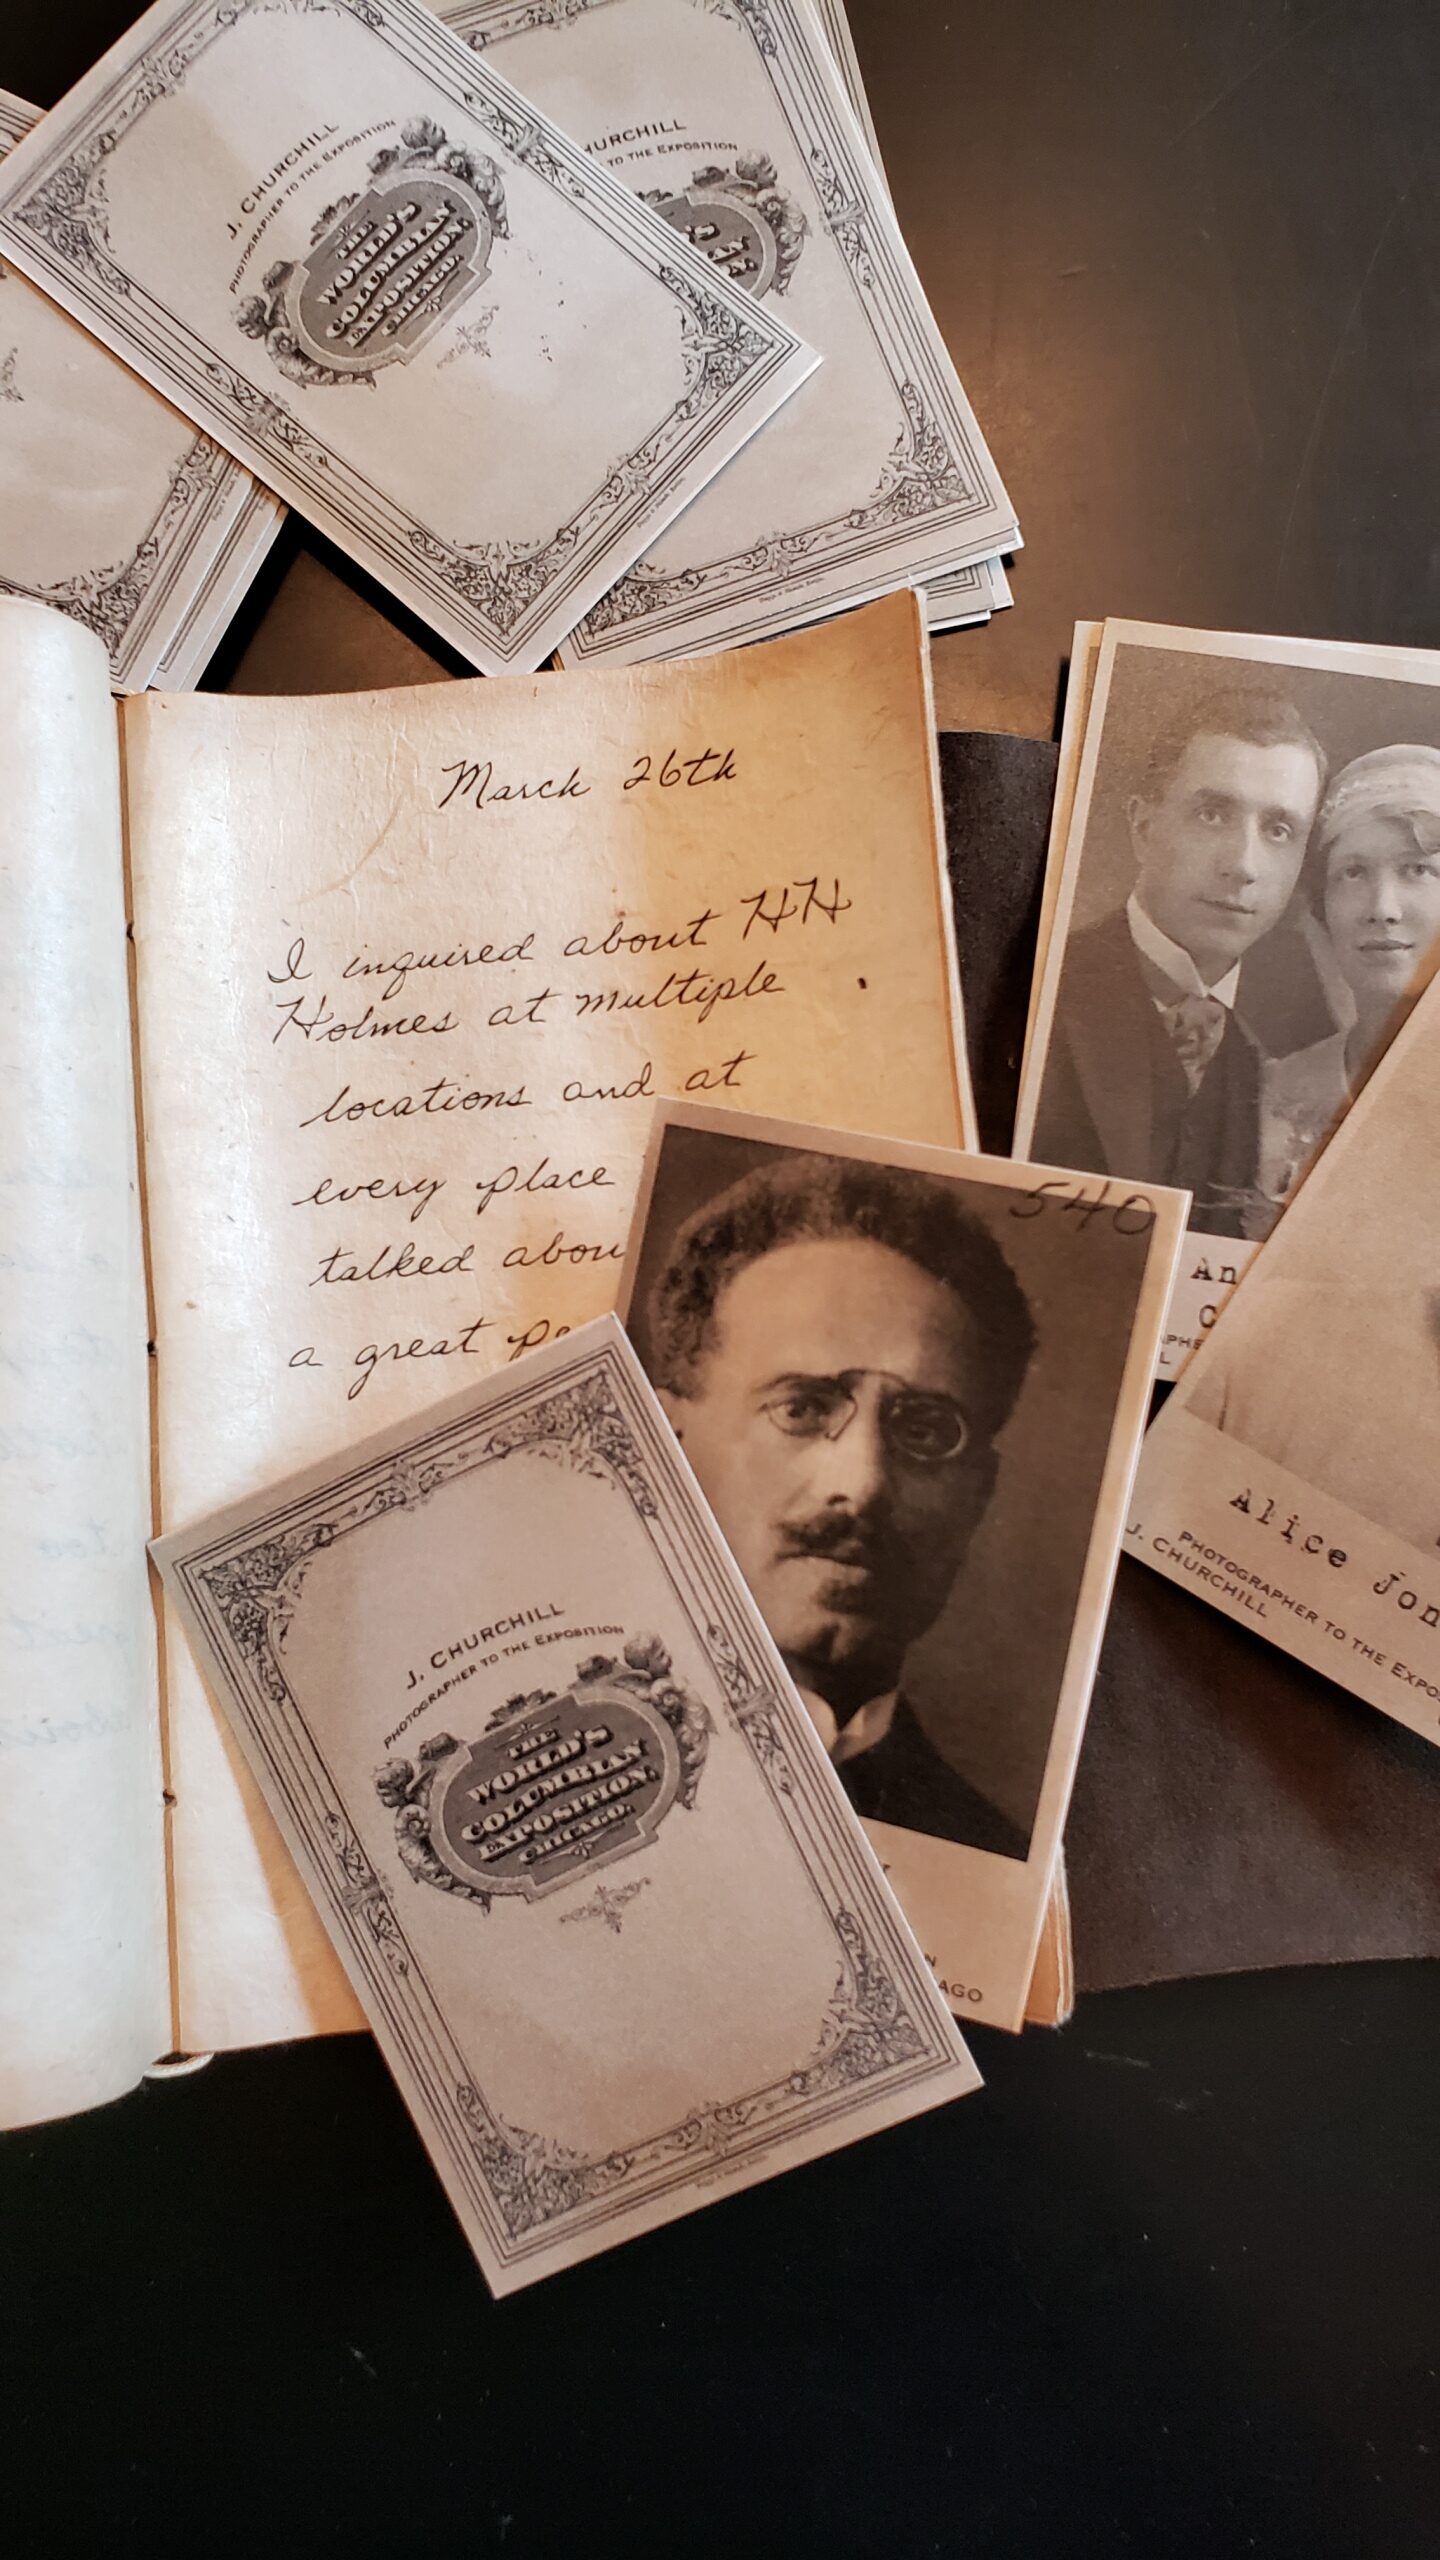 J. CHURCHILL
PHOTOGRAPHER TO THE EXPOSITION
THE
WORLD'S
COLUMBIAN
EXPOSITION,
CHICAGO.
HURCHILL
TO THE EXPOSITION
March 26th
I inquired about HH
Holmes at multiple
locations and at
every place
talked abou
a great pe
540
An
C
APHE
L
Alice Jon
PHOTOGRAPHER TO THE EXPOS
J. CHURCHILL
J. CHURCHILL
PHOTOGRAPHER TO THE EXPOSITION
THE
WORLD'S
COLUMBIAN
EXPOSITION,
CHICAGO.
N
AGO